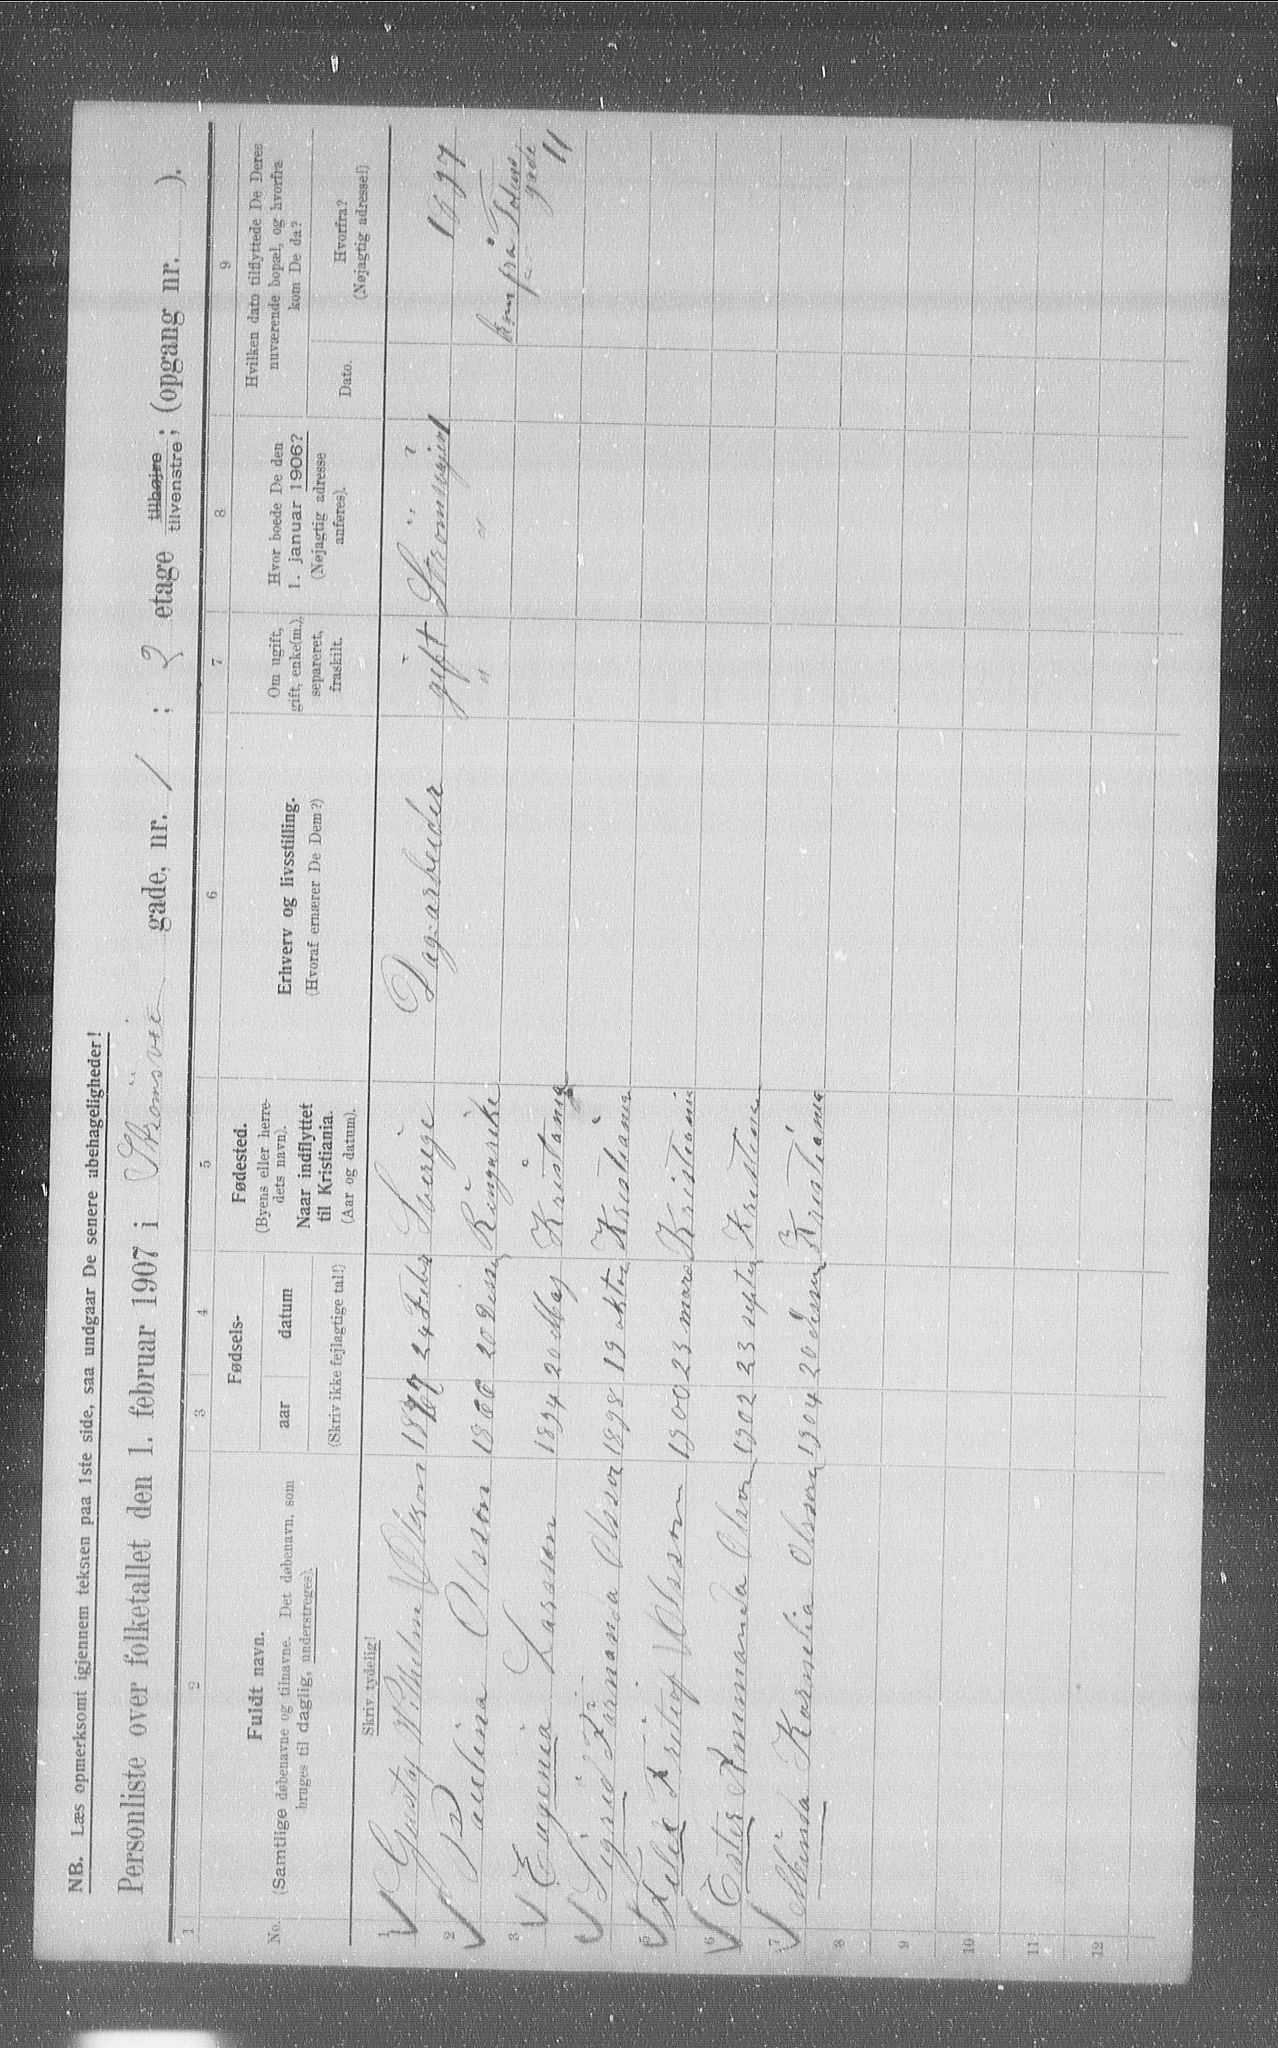 NB. Læs opmerksomt igjennem teksten paa 1ste side, saa undgaar De senere ubehageligheder!
Personliste over folketallet den 1. februar 1907 i Strömsvei gade, nr. 1; 2 etage tilhøjre tilvenstre; (opgang nr. ).
1 2 3 4 5 6 7 8 9
No. Fuldt navn. (Samtlige døbenavne og tilnavne. Det døbenavn, som bruges til daglig, understreges).
Fødsels- aar datum (Skriv ikke fejlagtige tal!)
Fødested. (Byens eller herredets navn). Naar indflyttet til Kristiania. (Aar og datum).
Erhverv og livsstilling. (Hvoraf ernærer De Dem?)
Om ugift, gift, enke(m.), separeret, fraskilt.
Hvor boede De den 1. januar 1906? (Nøjagtig adresse anføres).
Hvilken dato tilflyttede De Deres nuværende bopæl, og hvorfra kom De da?
Dato. Hvorfra? (Nøjagtig adresse!)
Skriv tydelig!
1 Gustaf Vilhelm Olsson 1867 24 Febr Sverige Dagarbeider gift Strömsvejen 1 1897
2 Paulina Olsson 1866 20 Desser Ringerike " " kom frå Totens gade 11
3 Eugenia Larsson 1894 20 Maj Kristania
4 Sigrid Olsson 1898 19 oktor Kristiania
5 Felix Fritiof Olsson 1900 23 mars Kristiania
6 Ester Ammanda Olson 1902 23 septer Kristiana
7 Minda Karnelia Olsson 1904 20 Desser Kristiania
8
9
10
11
12